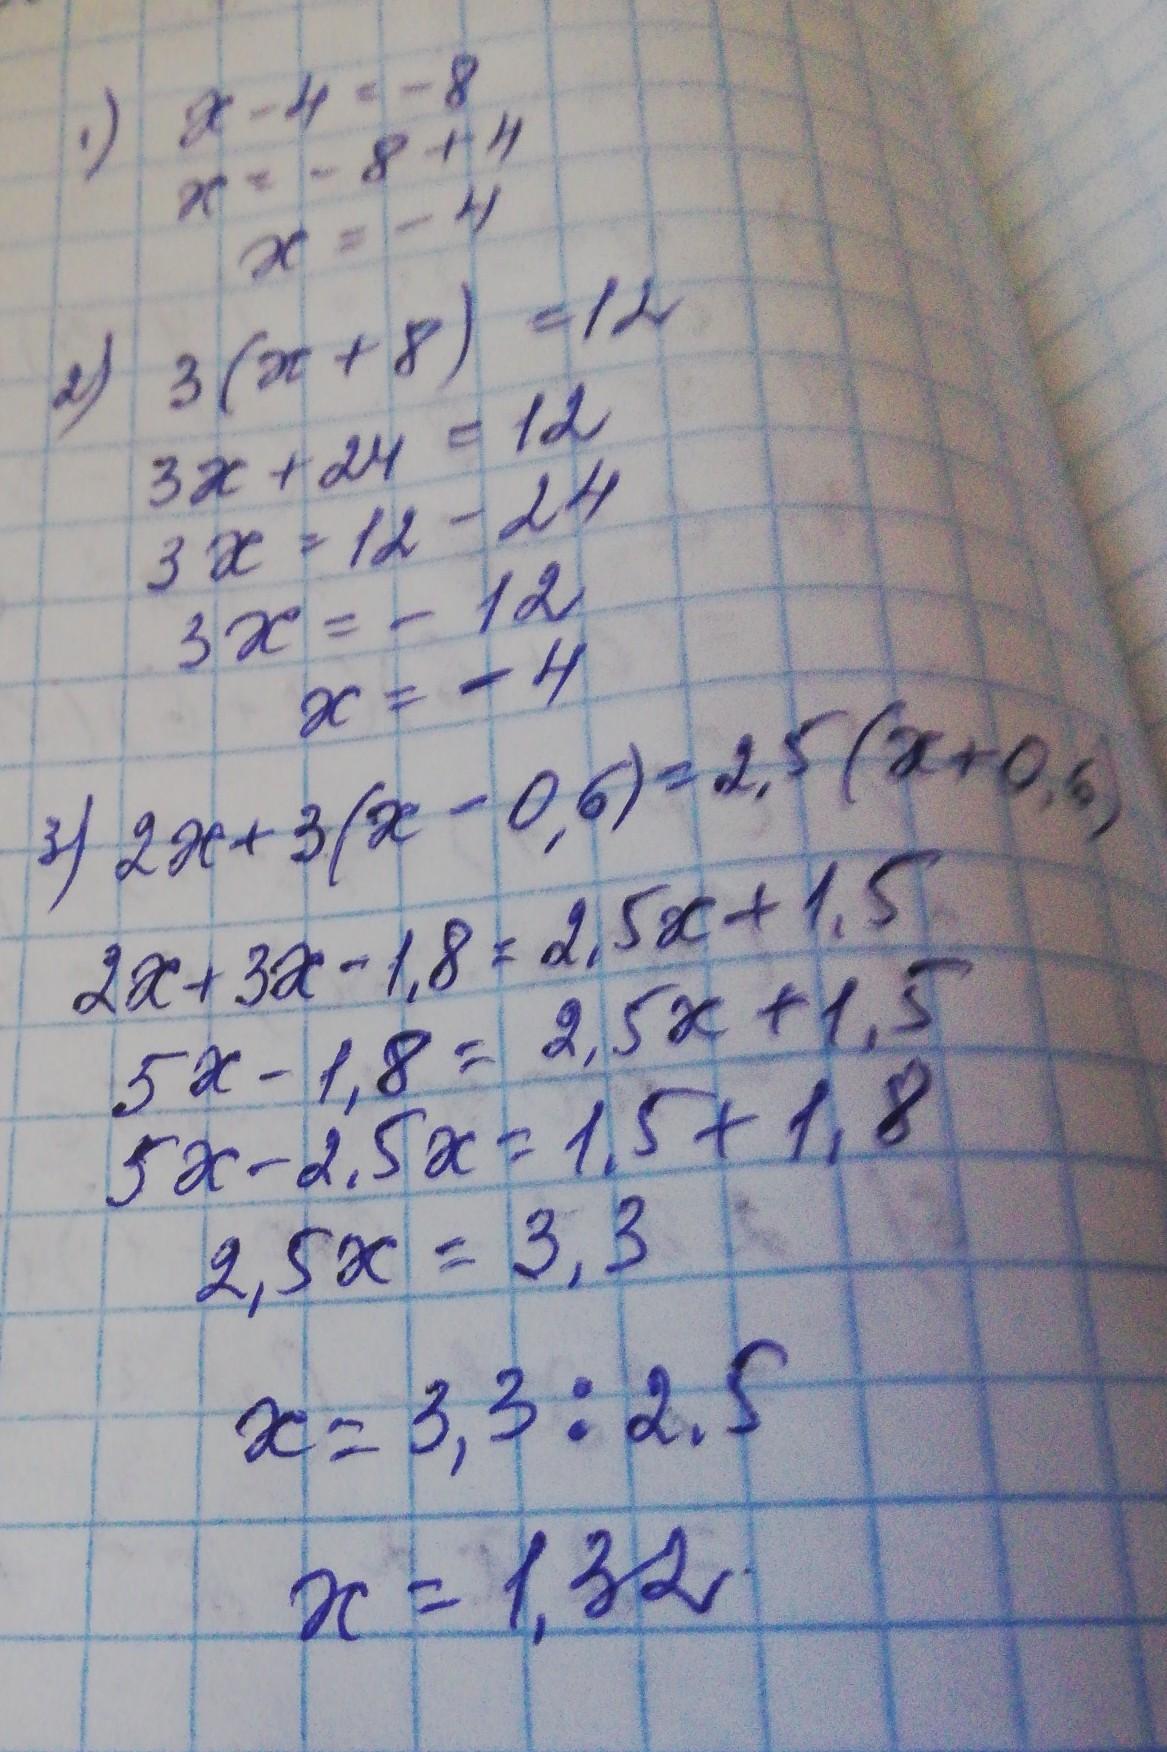 1) x - 4 = - 8
x = - 8 + 4
x = - 4
2) 3(x + 8) = 12
3x + 24 = 12
3x = 12 - 24
3x = - 12
x = - 4
3) 2x + 3(x - 0,6) = 2,5(x + 0,6)
2x + 3x - 1,8 = 2,5x + 1,5
5x - 1,8 = 2,5x + 1,5
5x - 2,5x = 1,5 + 1,8
2,5x = 3,3
x = 3,3 : 2.5
x = 1,32